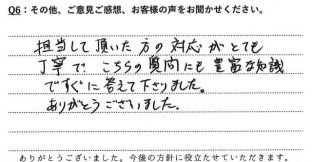 Q6：その他、ご意見ご感想、お客様の声をお聞かせください。
担当して頂いた方の対応がとても
丁寧で こちらの質問にも豊富な知識
ですぐに答えて下さりました。
ありがとうございました。
ありがとうございました。今後の方針に役立たせていただきます。